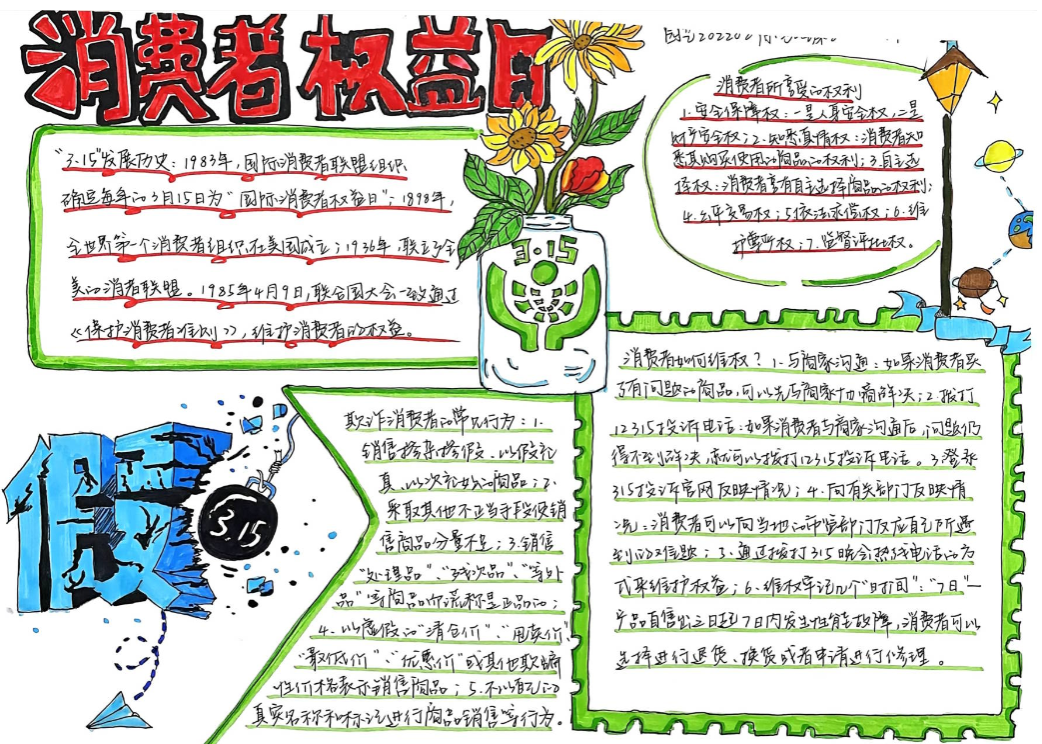 消费者权益日
"3·15"发展历史:1983年,国际消费者联盟组织
确定每年的3月15日为"国际消费者权益日";1898年,
全世界第一个消费者组织在美国成立;1936年,联立了全
美的消者联盟。1985年4月9日,联合国大会一致通过
《保护消费者准则》,维护消费者的权益。
3·15
消费者所享受的权利
1.安全保障权:一是人身安全权,二是
财产安全权;2.知悉真情权:消费者知
悉其购买使用的商品的权利;3.自主选
择权:消费者享有自主选择商品的权利;
4.公平交易权;5.依法求偿权;6.维
护尊严权;7.监督评比权。
假
3.15
欺诈消费者的常见行为:1.
销售掺杂掺假、以假充
真、以次充好的商品;2.
采取其他不正当手段使销
售商品分量不足;3.销售
"处理品"、"残次品"、"等外
品"等商品而谎称是正品的;
4.以虚假的"清仓价"、"甩卖价"、
"最低价"、"优惠价"或其他欺骗
性价格表示销售商品;5.不以自己的
真实名称和标记进行商品销售等行为。
消费者如何维权?1.与商家沟通:如果消费者买
了有问题的商品,可以先与商家协商解决;2.拨打
12315投诉电话:如果消费者与商家沟通后,问题仍
得不到解决,就可以拨打12315投诉电话。3.登录
315投诉官网反映情况;4.向有关部门反映情
况:消费者可以向当地的市监部门反应自己所遇
到的问题;5.通过拨打315晚会热线电话的方
式来维护权益;6.维权牢记几个"时间":"7日"一
产品自售出之日起7日内发生性能故障,消费者可以
选择进行退货、换货或者申请进行修理。